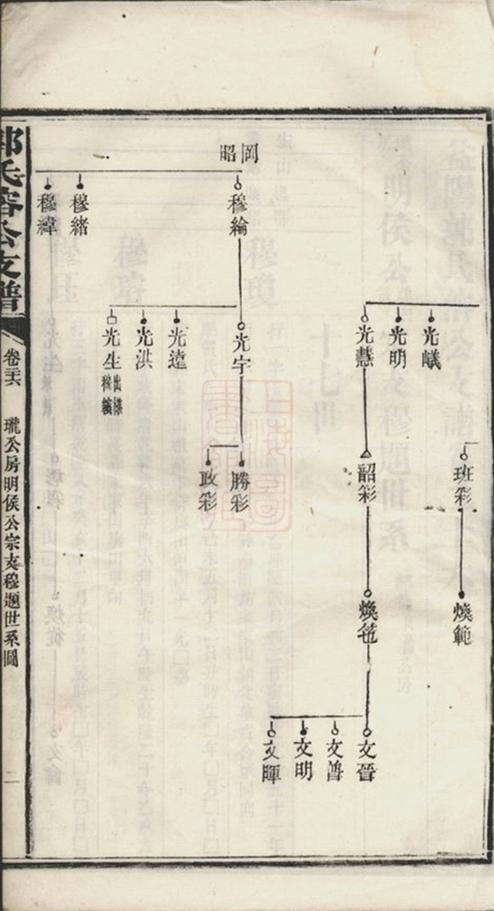 岡昭
光巘
光明
光慧
班彩
韶彩
煥範
煥苞
文晉
文普
文明
文暉
穆綸
穆緒
穆緯
光宇
光遠
光洪
光生
出
勝彩
政彩
氏
公支譜
卷三六
瓏公房明侯公宗支穆題世系圖
二